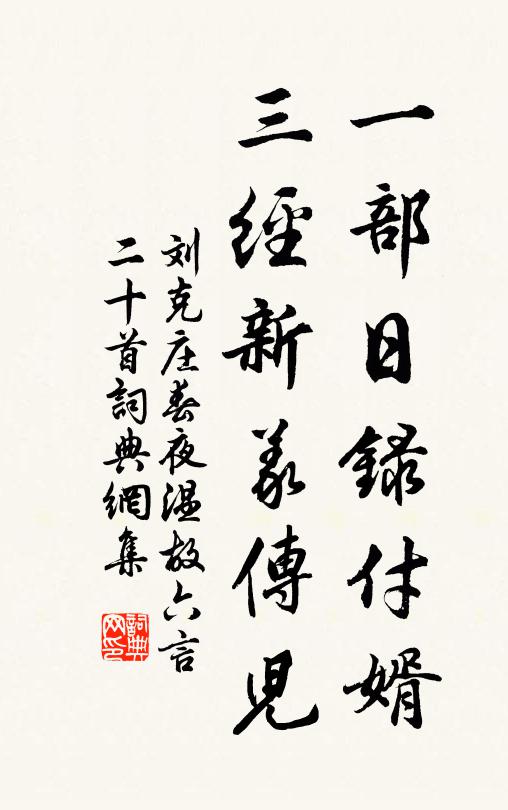 一部日録付婿
三經新義傳児
刘克庄春夜温故六言
二十首詞典網集
詞典网印